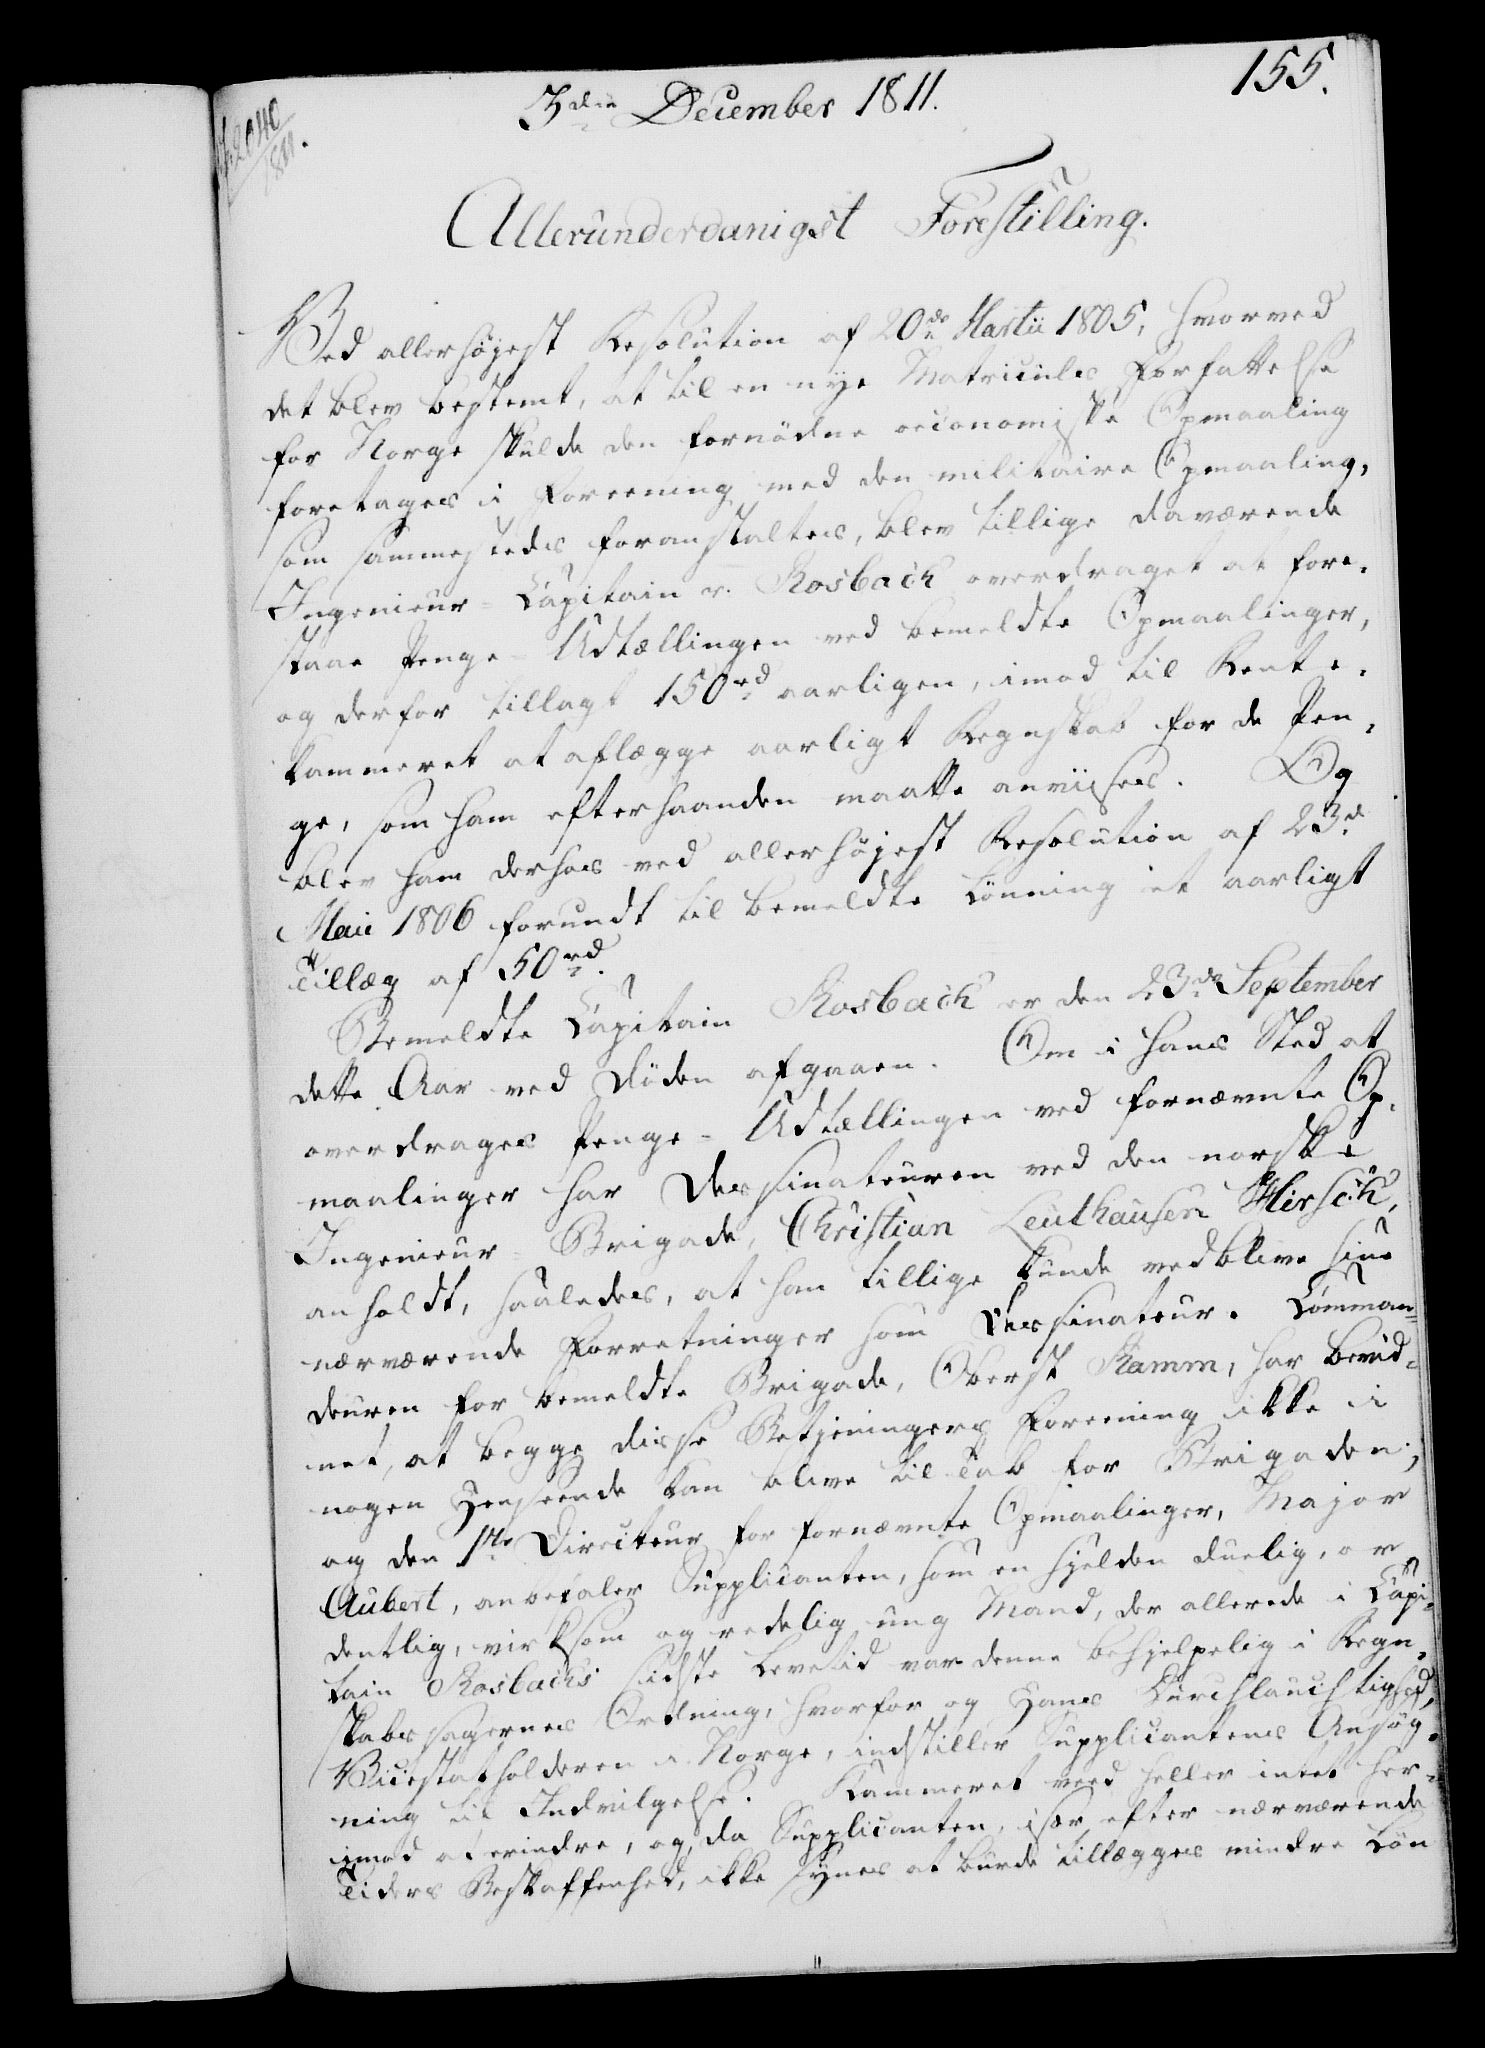 155.
3die December 1811.
2040
1811.
Allerunderdanigst Forestilling.
Ved allerhøjest Resolution af 20de Martii 1805, hvorved
det blev bestemt, at til en nye Matriculs Forfattelse
for Norge skulde den fornödne oeconomiske Opmaaling
foretages i Foreening med den militaire Opmaaling,
som sammesteds foranstaltes, blev tillige daværende
Ingenieur-Capitain v. Rosbach overdraget at fore-
staae Penge-Udtællingen ved bemeldte Opmaalinger,
og derfor tillagt 150rd aarligen, imod til Rente-
kammeret at aflægge aarligt Regnskab for de Pen-
ge, som ham efterhaanden maatte anviises. Og
blev ham derhos ved allerhøjest Resolution af 23d
Maii 1806 forundt til bemeldte Lönning et aarligt
Tillæg af 50rd.
Bemeldte Capitain Rosbach er den 23de September
dette Aar ved Döden afgaaen. Om i hans Sted at
overdrages Penge-Udtællingen ved fornævnte Op-
maalinger har Dessinateuren ved den norske
Ingenieur-Brigade, Christian Leuthausen Hirsch,
anholdt, saaledes, at han tillige kunde vedblive sine
nærværende Forretninger som Dessinateur. Comman-
deuren for bemeldte Brigade, Oberst Ramm, har bevid-
net, at begge disse Betjeningers Foreening ikke i
nogen Henseende kan blive til Tab for Brigaden,
og den 1ste Directeur for fornævnte Opmaalinger, Major
Aubert, anbefaler Supplicanten, som en sjelden duelig, or-
dentlig, virksom og redelig ung Mand, der allerede i Capi-
tain Rosbachs sidste Levetid var denne behjelpelig i Regn-
skabssagernes Ordning, hvorfor og Hans Durchlauchtighed,
Vicestatholderen i Norge, indstiller Supplicantens Ansøg-
ning til Indvilgelse. Kammeret veed heller intet her-
imod at erindre, og, da Supplicanten, især efter nærværende
Tiders Beskaffenhed, ikke synes at burde tillægges mindre Løn